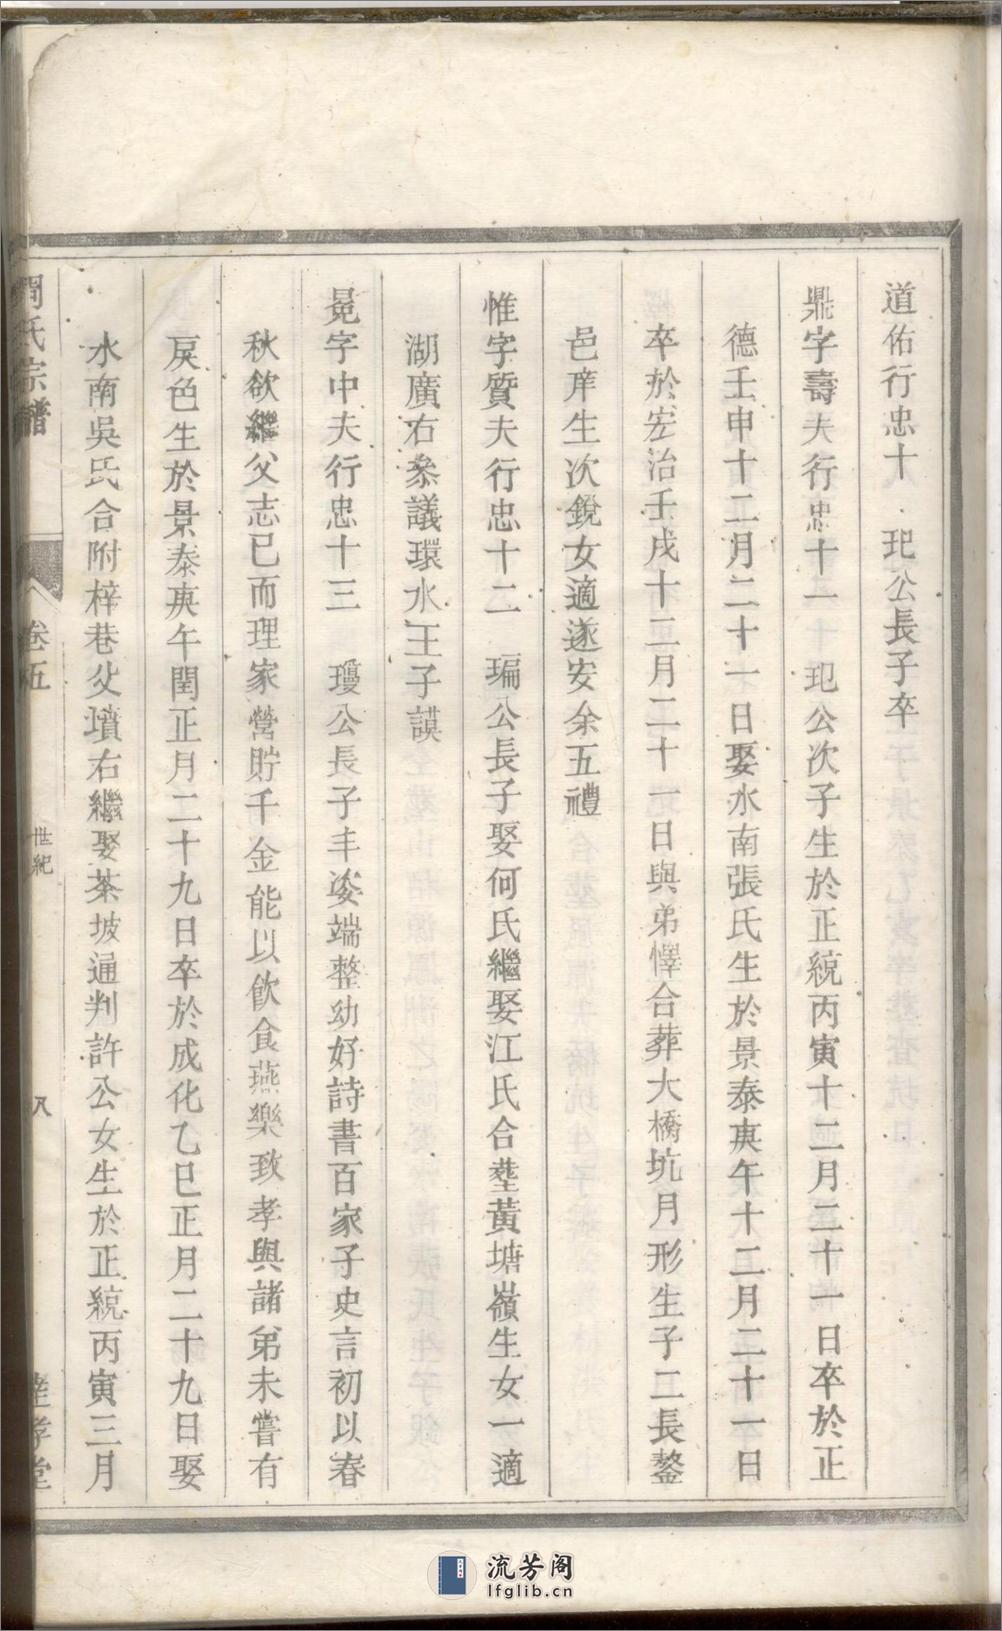 道佑行忠十 玘公長子卒
鼎字壽夫行忠十一 玘公次子生於正統丙寅十二月二十一日卒於正
德壬申十二月二十一日娶水南張氏生於景泰庚午十二月二十一日
卒於宏治壬戌十二月二十一日與弟懌合葬大橋坑月形生子二長鏊
邑庠生次銳女適遂安余五禮
惟字質夫行忠十二 㻞公長子娶何氏繼娶江氏合塟黃塘嶺生女一適
湖廣右叅議環水王子謨
冕字中夫行忠十三 瓊公長子丰姿端整幼好詩書百家子史言初以春
秋欲繼父志已而理家營貯千金能以飲食燕樂致孝與諸弟未嘗有
戾色生於景泰庚午閏正月二十九日卒於成化乙巳正月二十九日娶
水南吳氏合附梓巷父墳右繼娶茶坡通判許公女生於正統丙寅三月
氏宗譜
卷五
世紀
八
孝堂
流芳阁
lfglib.cn